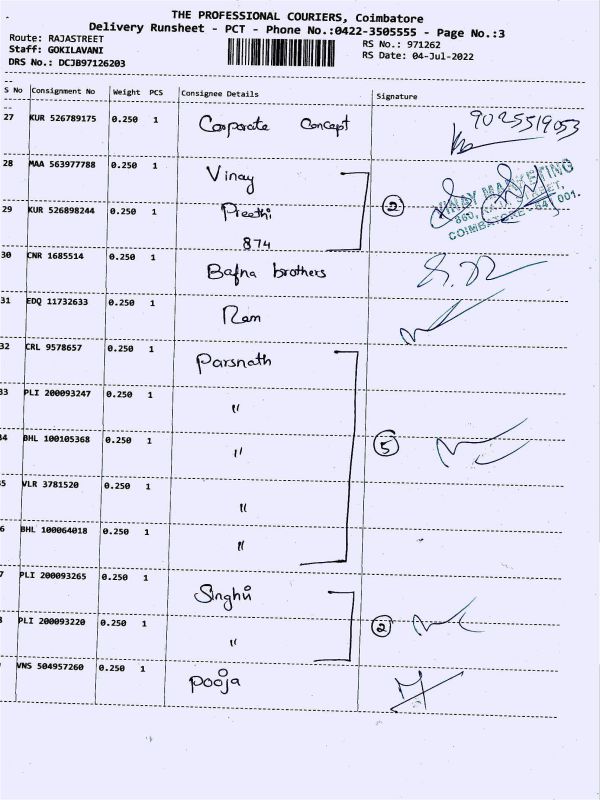 THE PROFESSIONAL COURIERS, Coimbatore
Delivery Runsheet - PCT - Phone No.:0422-3505555 - Page No.:3
Route: RAJASTREET
RS No.: 971262
Staff: GOKILAVANI
RS Date: 04-Jul-2022
DRS No.: DCJB97126203
S No Consignment No Weight PCS Consignee Details Signature
27 KUR 526789175 0.250 1 Corporate Concept 9025519053
28 MAA 563977788 0.250 1 Vinay
2 VINAY MARKETING
29 KUR 526898244 0.250 1 Preethi
874
COIMBATORE 641 001.
30 CNR 1685514 0.250 1 Bafna brothers
31 EDQ 11732633 0.250 1 Ram
32 CRL 9578657 0.250 1 Parsnath
33 PLI 200093247 0.250 1 "
34 BHL 100105368 0.250 1 " 5
35 VLR 3781520 0.250 1 "
6 BHL 100064018 0.250 1 "
7 PLI 200093265 0.250 1 Singhvi
PLI 200093220 0.250 1 " 2
VNS 504957260 0.250 1 Pooja